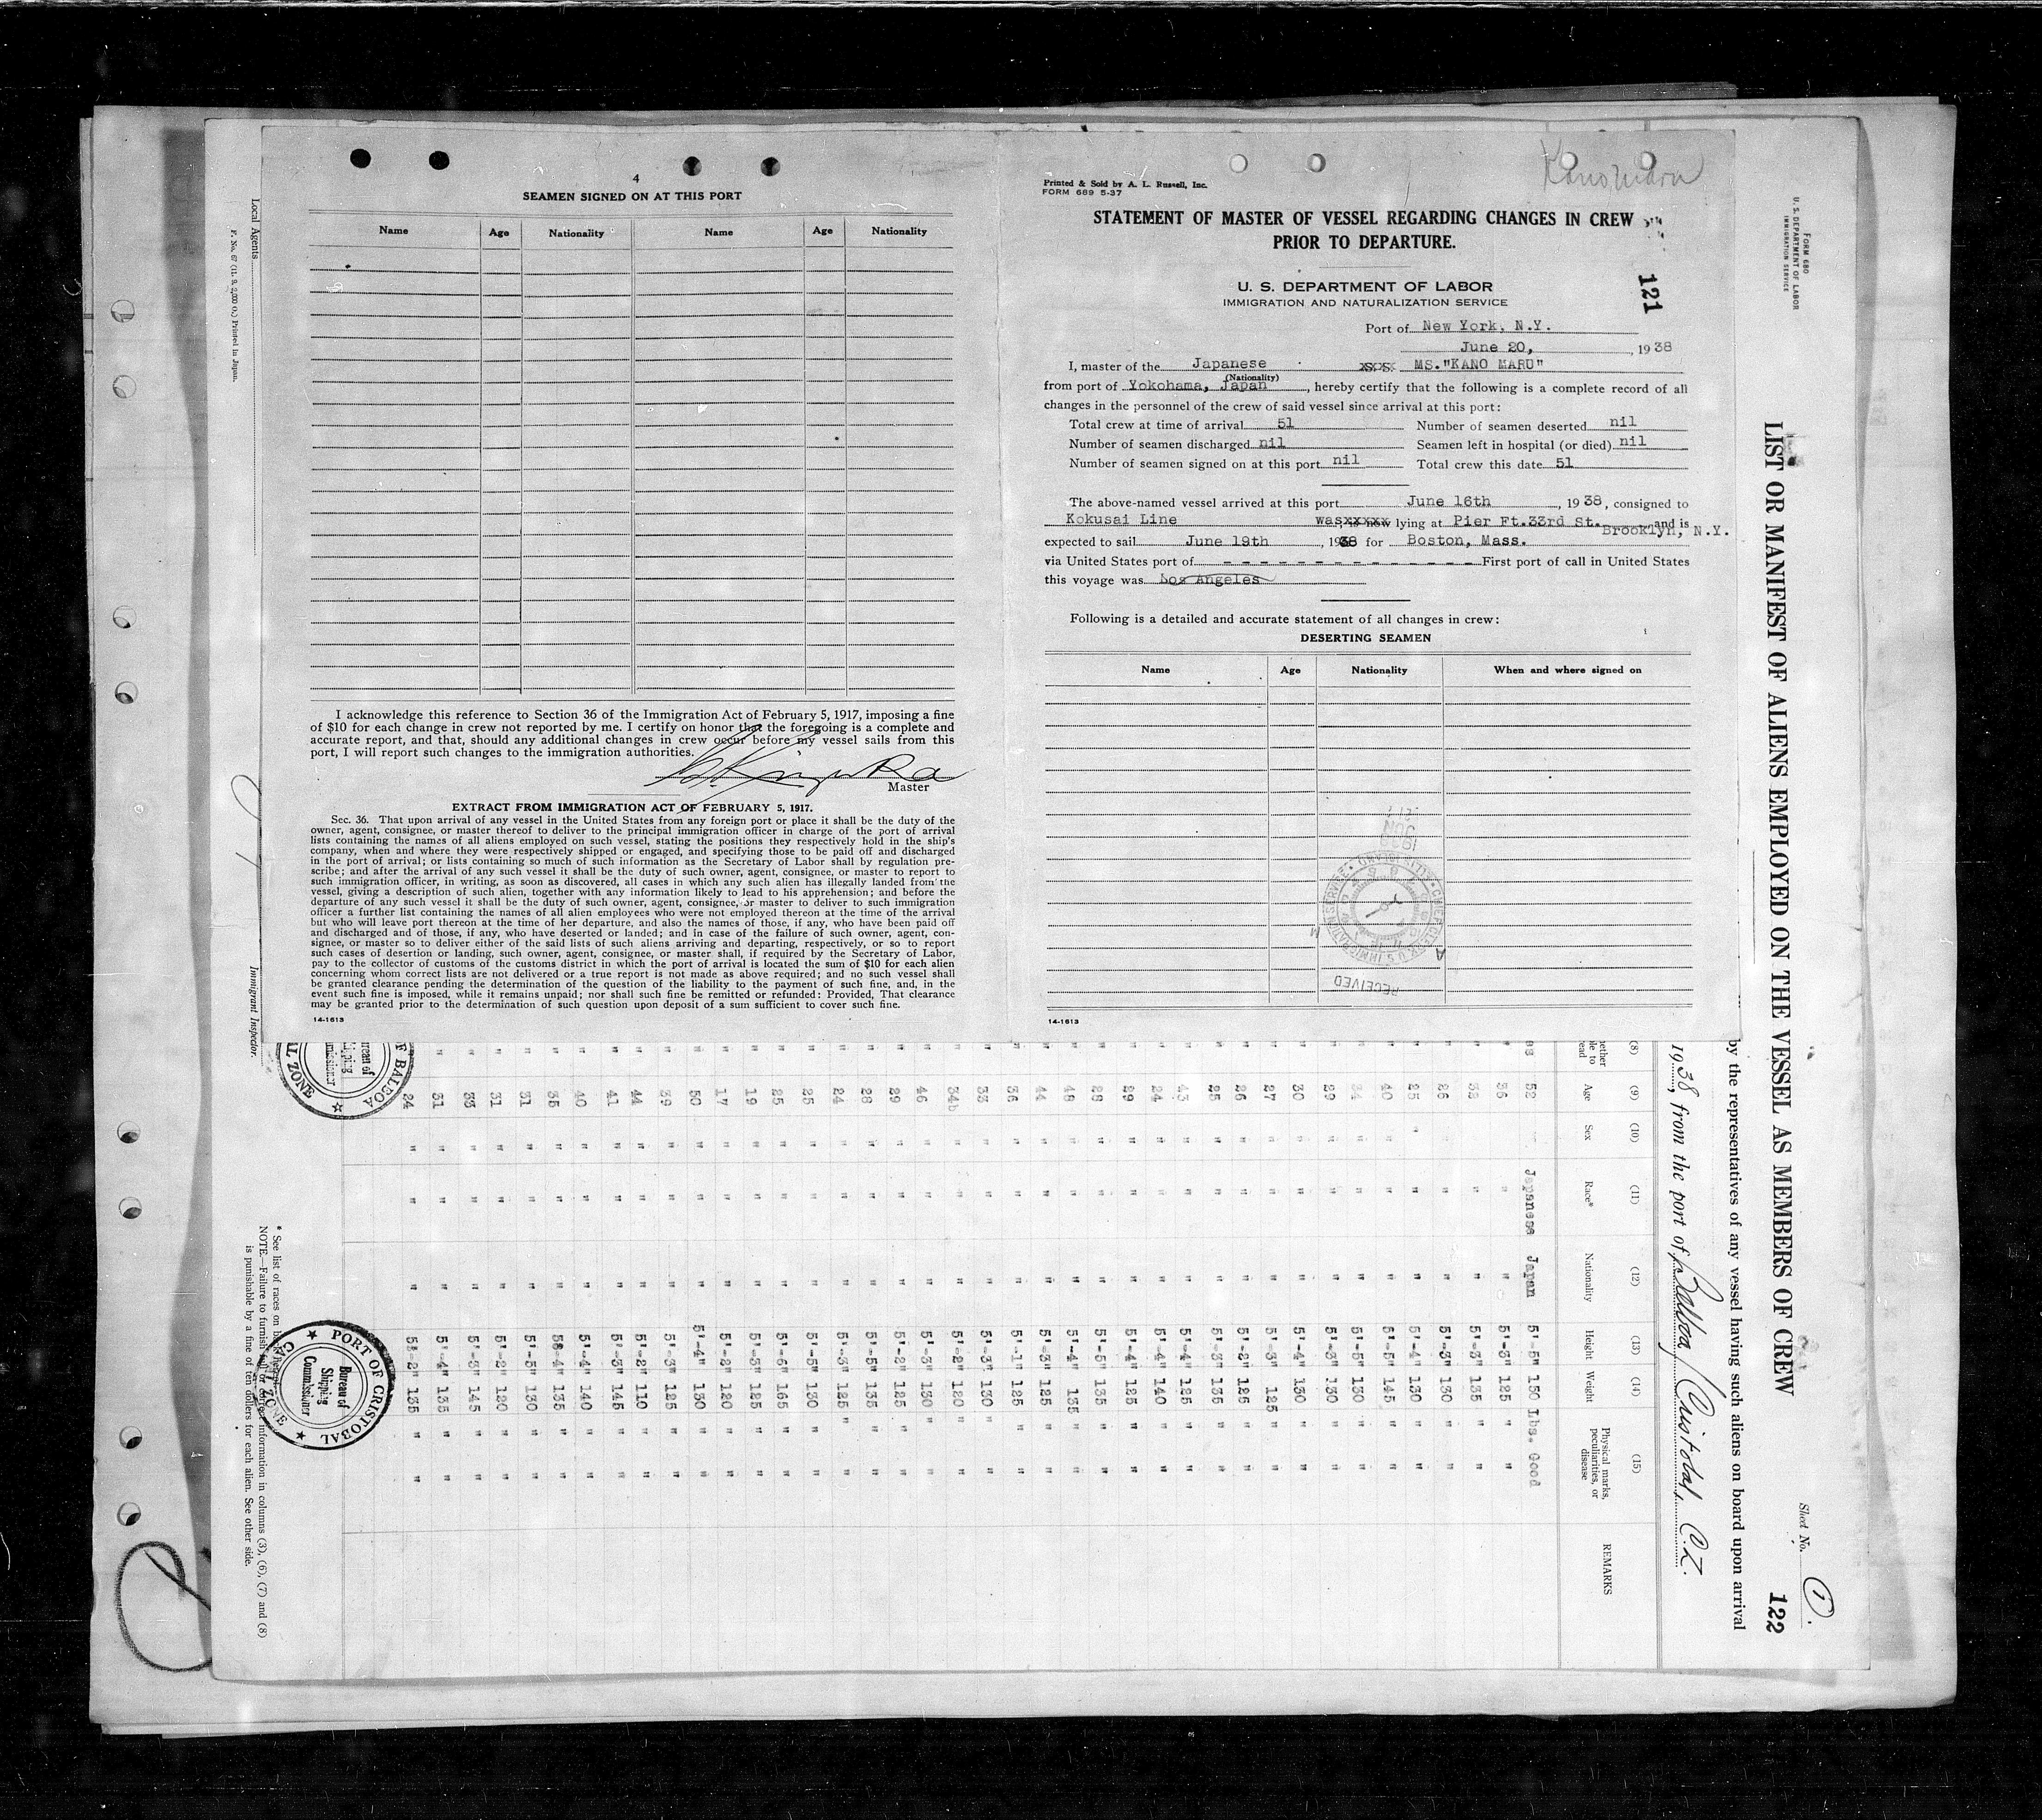 4
SEAMEN SIGNED ON AT THIS PORT
Name Age Nationality Name Age Nationality
I acknowledge this reference to Section 36 of the Immigration Act of February 5, 1917, imposing a fine
of $10 for each change in crew not reported by me. I certify on honor that the foregoing is a complete and
accurate report, and that, should any additional changes in crew occur before my vessel sails from this
port, I will report such changes to the immigration authorities.
Master
EXTRACT FROM IMMIGRATION ACT OF FEBRUARY 5, 1917.
Sec. 36. That upon arrival of any vessel in the United States from any foreign port or place it shall be the duty of the
owner, agent, consignee, or master thereof to deliver to the principal immigration officer in charge of the port of arrival
lists containing the names of all aliens employed on such vessel, stating the positions they respectively hold in the ship's
company, when and where they were respectively shipped or engaged, and specifying those to be paid off and discharged
in the port of arrival; or lists containing so much of such information as the Secretary of Labor shall by regulation pre-
scribe; and after the arrival of any such vessel it shall be the duty of such owner, agent, consignee, or master to report to
such immigration officer, in writing, as soon as discovered, all cases in which any such alien has illegally landed from the
vessel, giving a description of such alien, together with any information likely to lead to his apprehension; and before the
departure of any such vessel it shall be the duty of such owner, agent, consignee, or master to deliver to such immigration
officer a further list containing the names of all alien employees who were not employed thereon at the time of the arrival
but who will leave port thereon at the time of her departure, and also the names of those, if any, who have been paid off
and discharged and of those, if any, who have deserted or landed; and in case of the failure of such owner, agent, con-
signee, or master so to deliver either of the said lists of such aliens arriving and departing, respectively, or so to report
such cases of desertion or landing, such owner, agent, consignee, or master shall, if required by the Secretary of Labor,
pay to the collector of customs of the customs district in which the port of arrival is located the sum of $10 for each alien
concerning whom correct lists are not delivered or a true report is not made as above required; and no such vessel shall
be granted clearance pending the determination of the question of the liability to the payment of such fine, and, in the
event such fine is imposed, while it remains unpaid; nor shall such fine be remitted or refunded: Provided, That clearance
may be granted prior to the determination of such question upon deposit of a sum sufficient to cover such fine.
14-1613
Kano Maru
Printed & Sold by A. L. Russell, Inc.
FORM 689 5-37
STATEMENT OF MASTER OF VESSEL REGARDING CHANGES IN CREW
PRIOR TO DEPARTURE.
U. S. DEPARTMENT OF LABOR
IMMIGRATION AND NATURALIZATION SERVICE
121
Port of New York, N.Y.
June 20, , 1938
I, master of the Japanese MS."KANO MARU"
(Nationality)
from port of Yokohama, Japan , hereby certify that the following is a complete record of all
changes in the personnel of the crew of said vessel since arrival at this port:
Total crew at time of arrival 51 Number of seamen deserted nil
Number of seamen discharged nil Seamen left in hospital (or died) nil
Number of seamen signed on at this port nil Total crew this date 51
The above-named vessel arrived at this port June 16th , 1938, consigned to
Kokusai Line was xxxxx lying at Pier Ft.33rd St. Brooklyn, N.Y. and is
expected to sail June 19th , 1938 for Boston, Mass.
via United States port of - - - - - - - - - - - - - - First port of call in United States
this voyage was Los Angeles
Following is a detailed and accurate statement of all changes in crew:
DESERTING SEAMEN
Name Age Nationality When and where signed on
RECEIVED
14-1613
FORM 680
U. S. DEPARTMENT OF LABOR
IMMIGRATION SERVICE
LIST OR MANIFEST OF ALIENS EMPLOYED ON THE VESSEL AS MEMBERS OF CREW
Sheet No. 1.
122
by the representatives of any vessel having such aliens on board upon arrival
1938, from the port of Balboa / Cristobal, C.Z.
(8) (9) (10) (11) (12) (13) (14) (15)
Age Sex Race* Nationality Height Weight Physical marks, peculiarities, or disease REMARKS
52 Japanese Japan 5'-5" 150 Lbs. Good
36 " " 5'-3" 125 " "
" " 5'-3" 135 " "
26 " " 5'-3" 130 " "
25 " " " 5'-4" 130 " "
40 " " " 5'-5" 145 " "
" " " 5'-5" 130 " "
29 " " " 5'-3" 130 " "
30 " " " 5'-4" 130 " "
27 " " " 5'-3" 125 " "
26 " " " 5'-2" 125 " "
25 " " " 5'-3" 135 " "
43 " " " 5'-4" 125 " "
24 " " " 5'-4" 140 " "
29 " " " 5'-4" 125 " "
28 " " " 5'-5" 135 " "
48 " " " 5'-4" 135 " "
44 " " " 5'-3" 125 " "
36 " " " 5'-1" 125 " "
33 " " " 5'-3" 130 " "
34 " " " 5'-2" 120 " "
46 " " " 5'-3" 130 " "
29 " " " 5'-2" 125 " "
28 " " " 5'-5" 135 " "
24 " " " 5'-3" 125 " "
25 " " " 5'-5" 130 " "
25 " " " 5'-6" 165 " "
19 " " " 5'-3" 125 " "
17 " " " 5'-2" 120 " "
50 " " " 5'-4" 130 " "
39 " " " 5'-3" 125 " "
44 " " " 5'-2" 110 " "
41 " " " 5'-3" 145 " "
40 " " " 5'-4" 140 " "
35 " " " 5'-4" 135 " "
31 " " " 5'-5" 130 " "
31 " " " 5'-2" 120 " "
33 " " " 5'-3" 145 " "
31 " " " 5'-4" 135 " "
24 " " " 5'-2" 135 " "
PORT OF CRISTOBAL
Bureau of
Shipping
Commissioner
F BALBOA
AL ZONE
* See list of races on back hereof.
NOTE.—Failure to furnish full or correct information in columns (3), (6), (7) and (8)
is punishable by a fine of ten dollars for each alien. See other side.
Local Agents
Immigrant Inspector.
F. No. 67 (1l. 9. 2,000 O.) Printed in Japan.